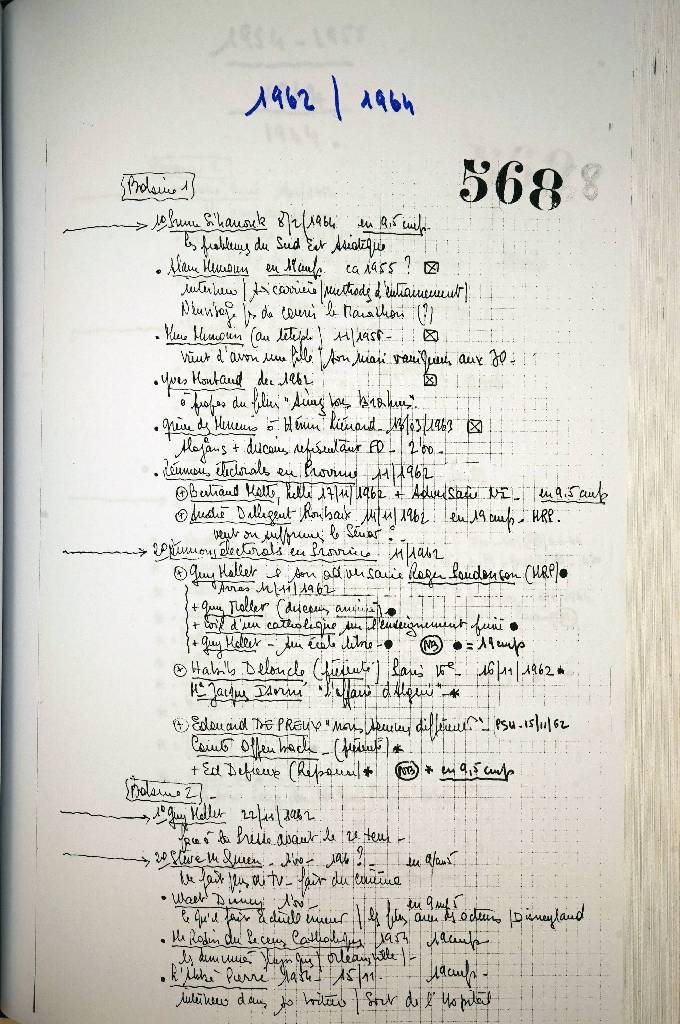 1962 / 1964
568
Bobine 1
1° Prince Sihanouk 8/2/1964 en 9,5 cm/s
les problèmes du Sud Est Asiatique
• Alain Mimoun en 19 cm/s ca 1955 ?
Interview / sa carrière / méthode d'entrainement /
de courir le Marathon (?)
• Mme Mimoun (au téléph) 11/1956 -
vient d'avoir une fille / son mari vainqueur aux JO -
• Yves Montand dec 1962
à propos du film
• grève des Mineurs à Hénin Liénard - 13/03/1963
Slogans + discours représentant FO - 2'00 -
• Réunions électorales en Province 11/1962
+ Bertrand Motte, Lille 17/11/1962 + Adversaire - en 9.5 cm/s
+ André Diligent Roubaix 14/11/1962 en 19 cm/s - MRP.
veut on supprimer le Sénat ? -
2° Réunions électorales en Province 11/1962
+ Guy Mollet et son adversaire Roger (MRP)
Arras 12/11/1962
+ Guy Mollet (discours
+ d'un catholique sur l'enseignement
+ Guy Mollet - sur école libre - NB = 19 cm/s
+ Habib Deloncle (présenté) Paris 15e - 16/11/1962 *
Me Jacques Isorni "l'affaire d'Algérie" - *
+ Edouard DEPREUX "nous sommes différents" - PSU - 15/11/62
Offenbach - (présenté) *
+ Ed Depreux (Réponse) * NB * en 9,5 cm/s
Bobine 2 -
1° Guy Mollet 22/11/1962
face à la Presse avant le 2e tour -
2° Steve Mc Queen - 1'00 - 196 ? - en 9/5
Ne fait plus de TV - fait du cinéma
• Walt Disney 1'00 - en 9 5
Ce qu'il fait actuellement / les films avec des acteurs / Disneyland
• Mr Robin du Secours Catholique 1954 19 cm/s
les / Orléansville / -
• L'Abbé Pierre 1954 - 15/11 - 19 cm/s -
Interview dans sa voiture / Sort de l'Hopital